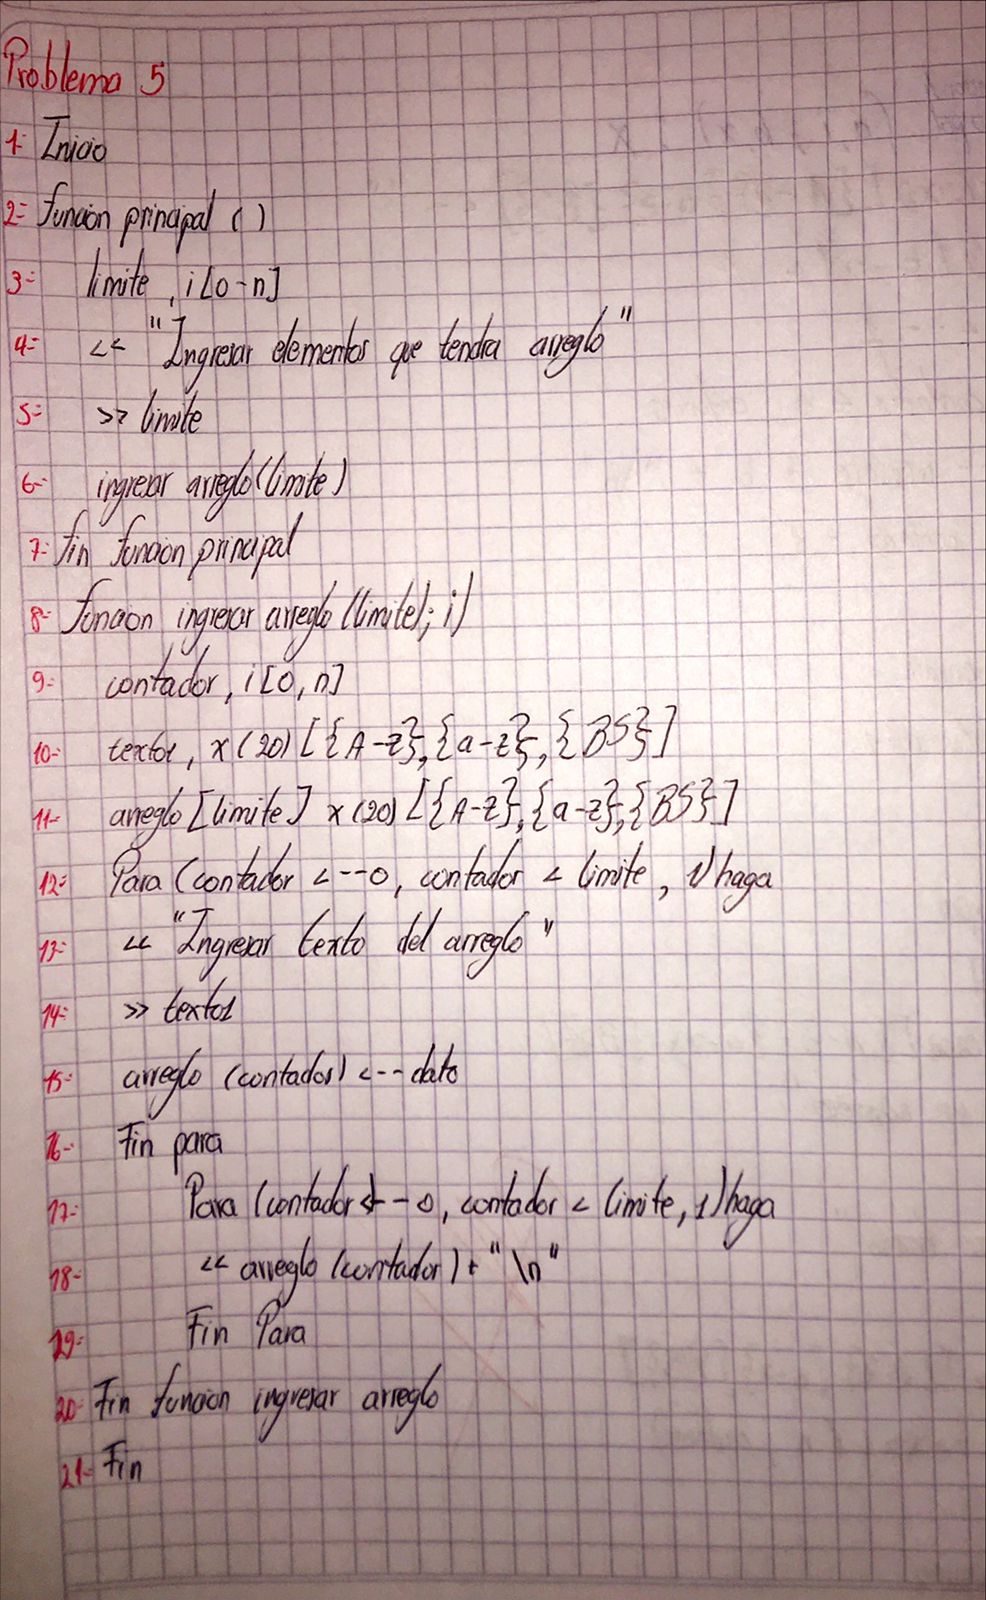 Problema 5
1- Inicio
2- funcion principal ( )
3- limite , i [0-n]
4- << "Ingresar elementos que tendra arreglo"
5- >> limite
6- ingresar arreglo(limite)
7- fin funcion principal
8- funcion ingresar arreglo (limite); i)
9- contador, i [0, n]
10- texto1, x (20) [{A-z}, {a-z}, {BS}]
11- arreglo [limite] x (20) [{A-z}, {a-z}, {BS}]
12- Para (contador <--0, contador < limite, 1) haga
13- << "Ingresar texto del arreglo"
14- >> texto1
15- arreglo (contador) <-- dato
16- Fin para
17- Para (contador <--0, contador < limite, 1) haga
18- << arreglo (contador) + "\n"
19- Fin Para
20- Fin funcion ingresar arreglo
21- Fin